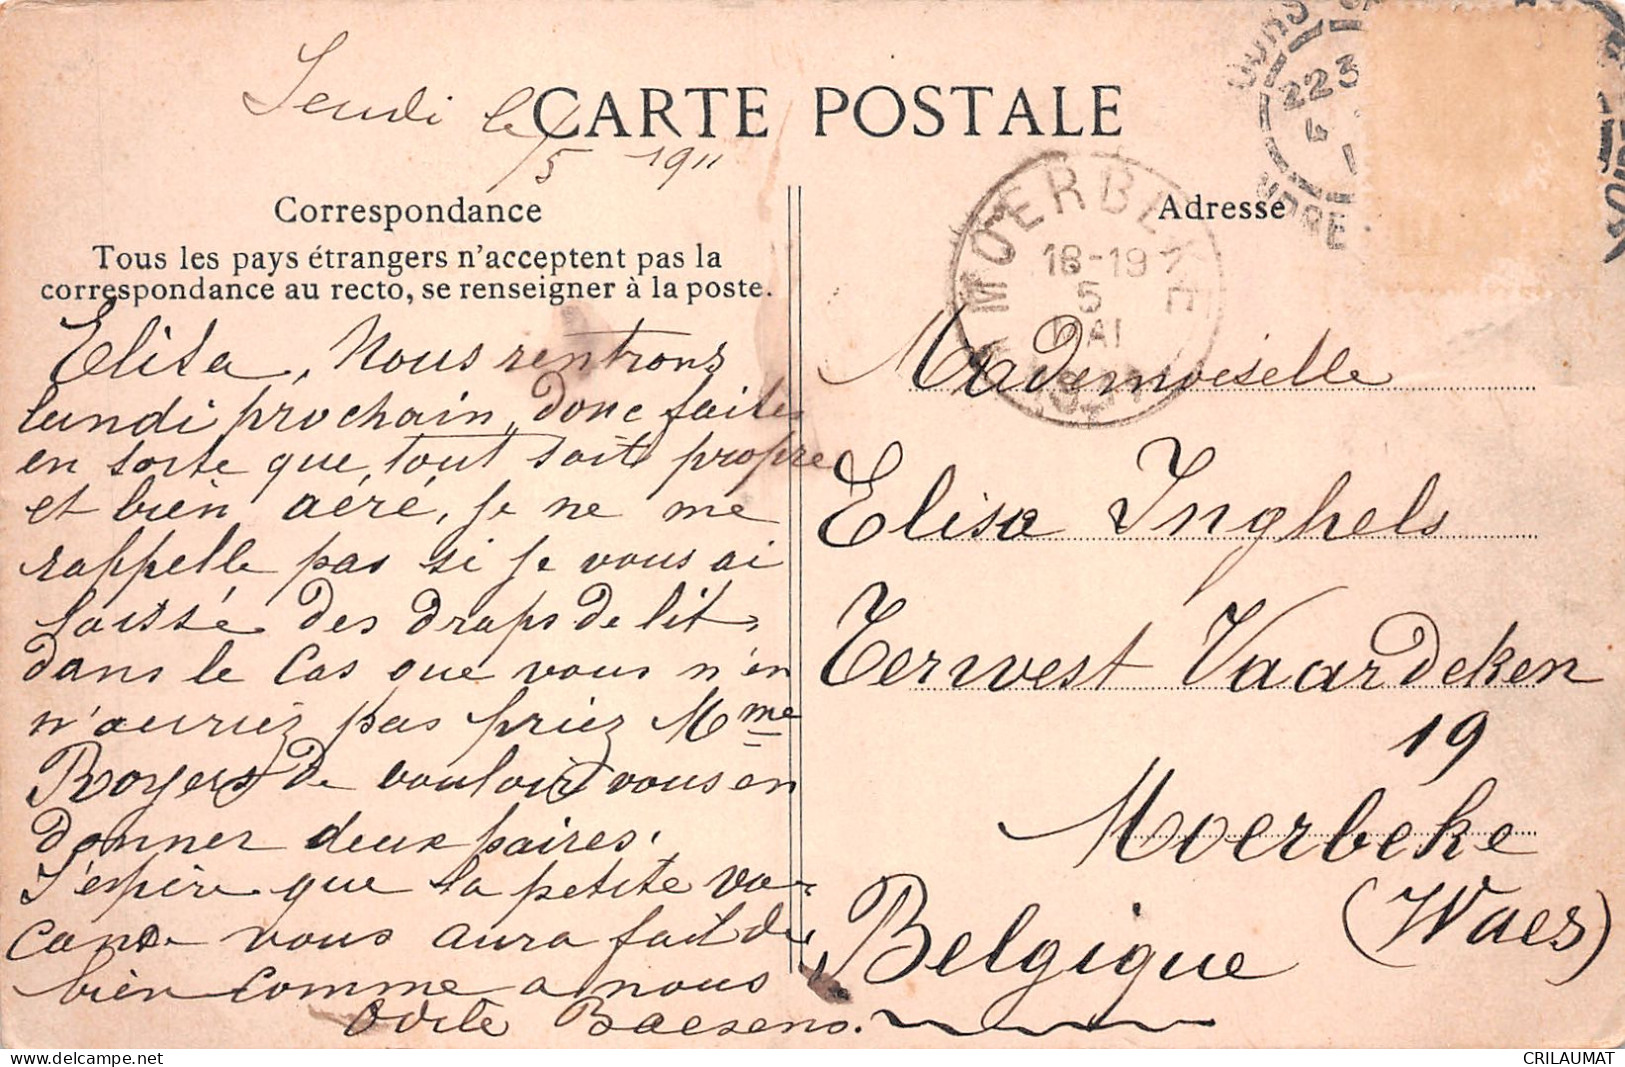 Jeudi le
/5 1911
CARTE POSTALE
Correspondance
Tous les pays étrangers n'acceptent pas la
correspondance au recto, se renseigner à la poste.
Elisa, Nous rentrons
lundi prochain, donc faites
en sorte que tout soit propre
et bien aéré, je ne me
rappelle pas si je vous ai
laissé des draps de lit,
dans le cas que vous n'en
n'auriez pas priez Mme
Royers de vouloir vous en
donner deux paires.
J'espère que la petite va-
cance vous aura fait du
bien comme a nous
Odile Baesens.
223
4
MOERBEKE
18-19
5
MAI
Adresse
Mademoiselle
Elisa Inghels
Terwest Vaardeken
19
Moerbeke
(Waes)
Belgique
CRILAUMAT